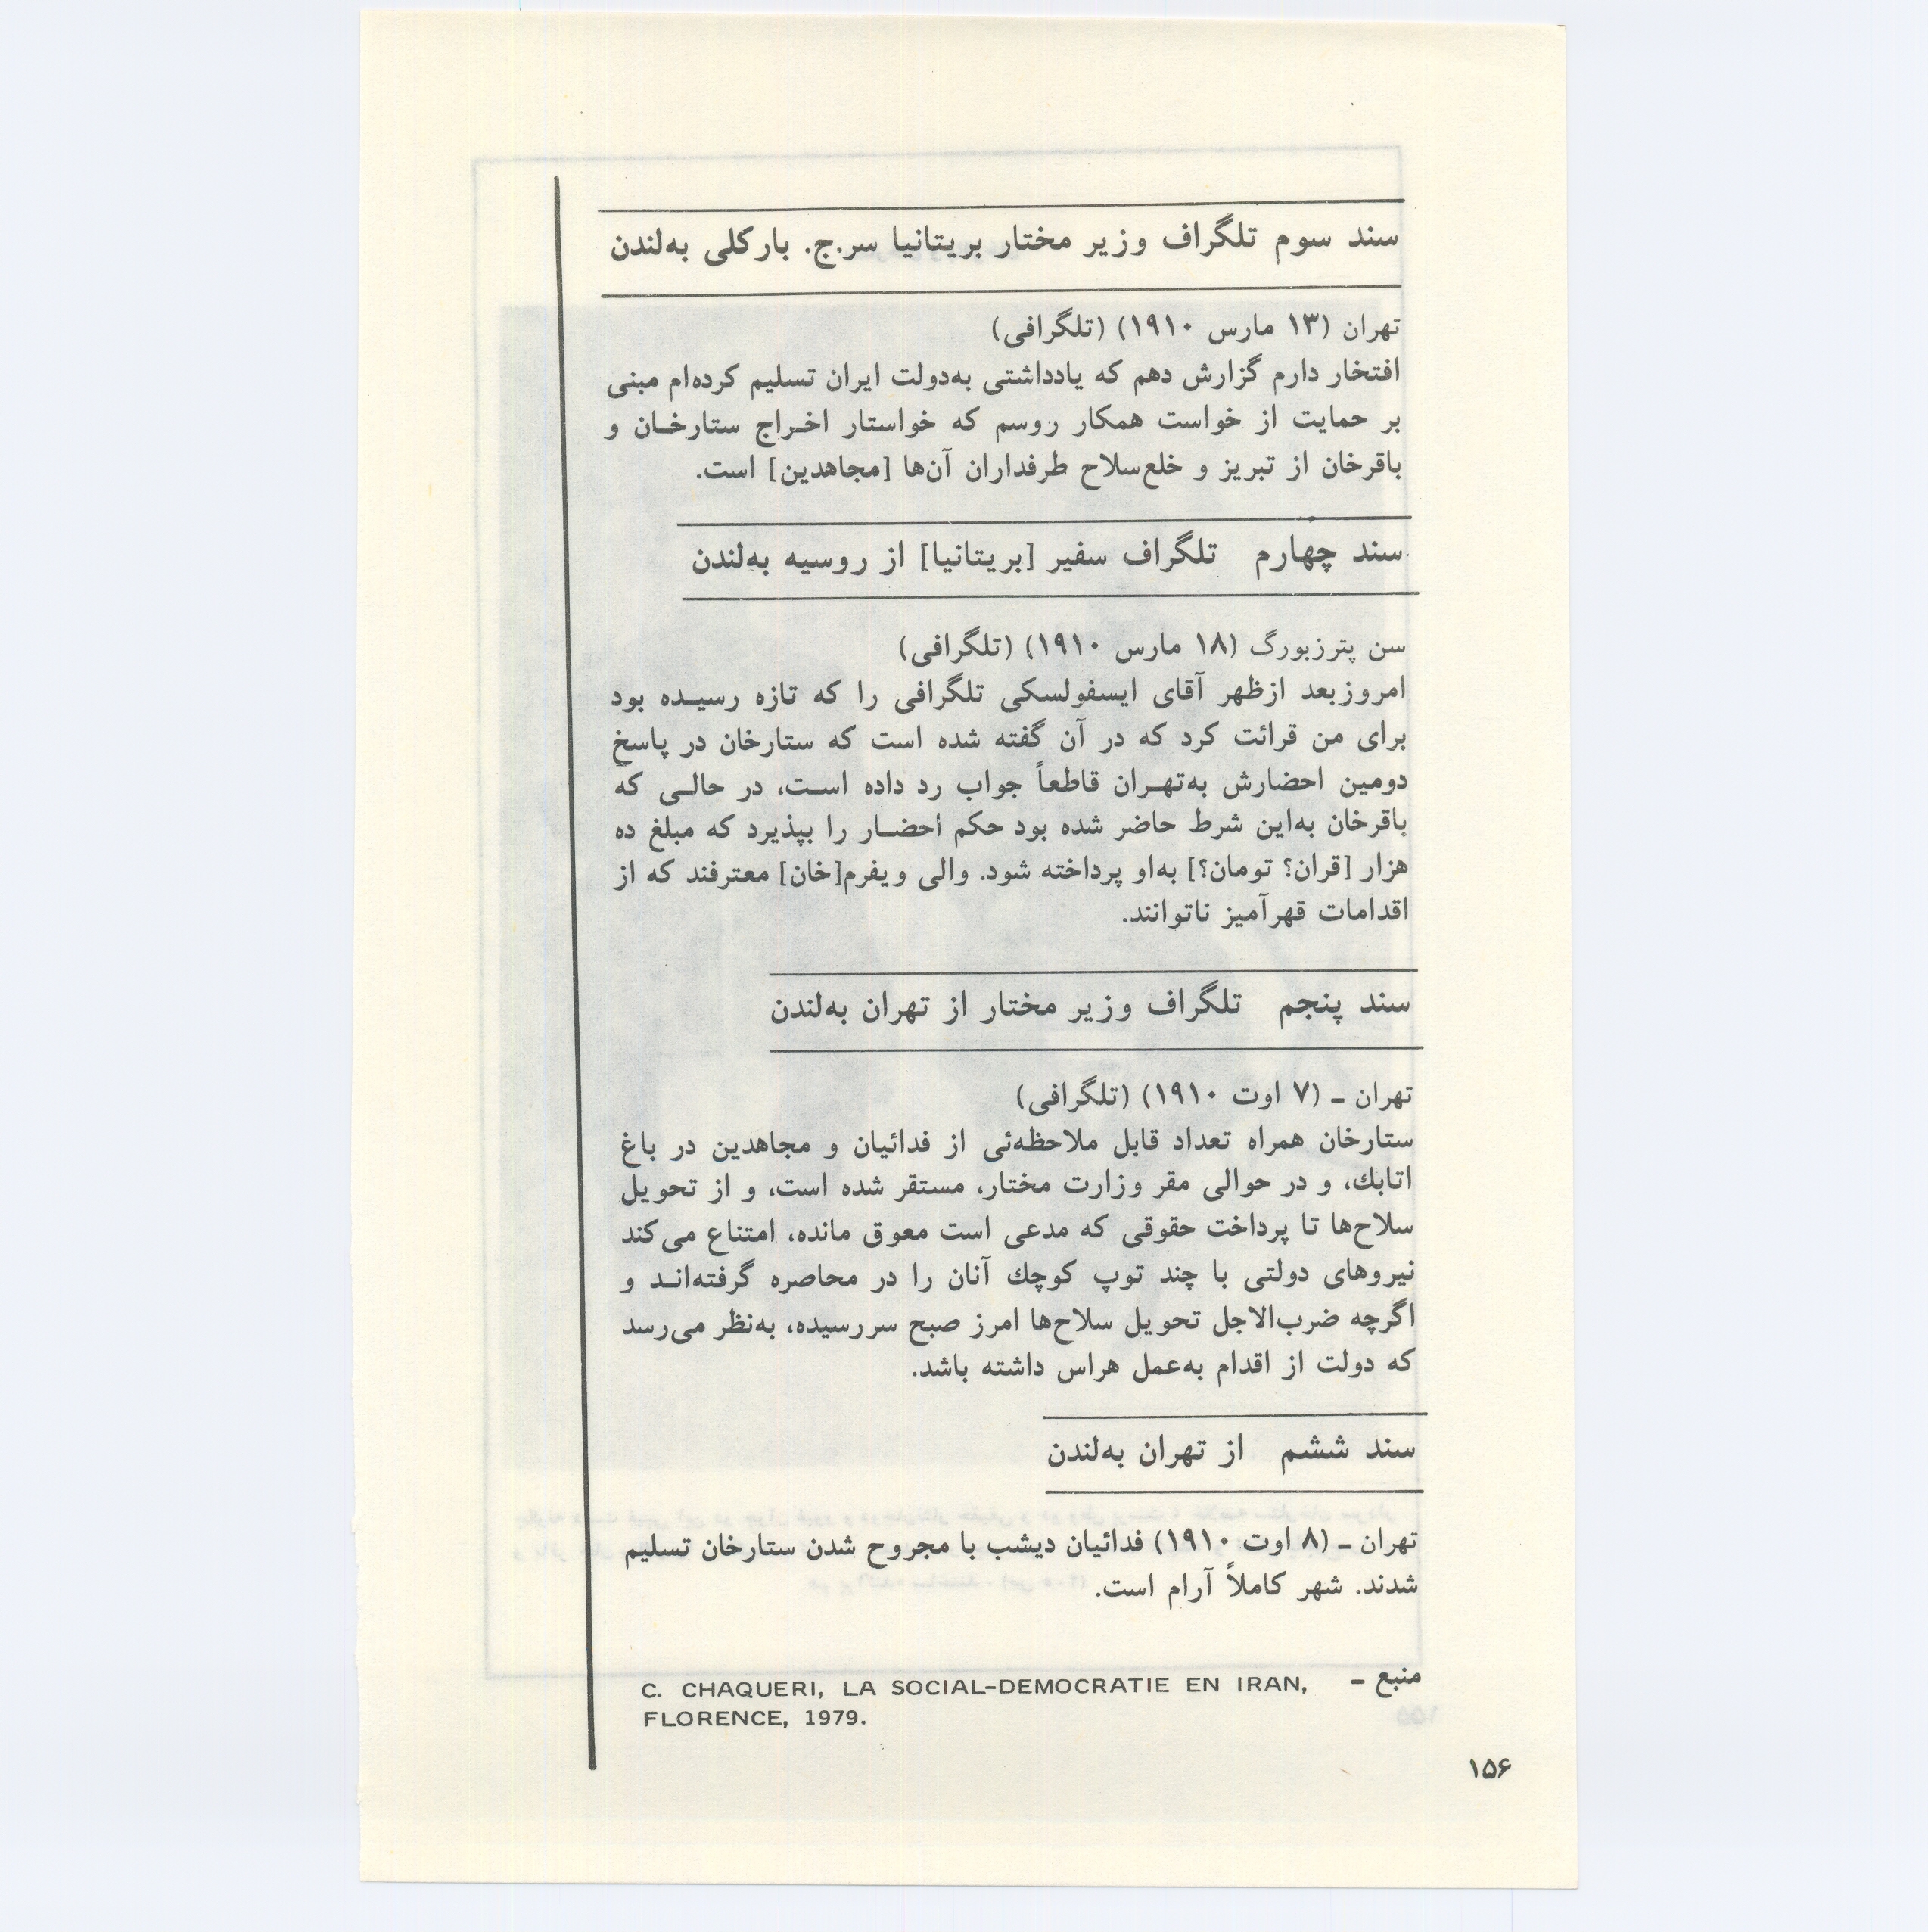 سند سوم تلگراف وزیر مختار بریتانیا سر.ج. بارکلی به‌لندن
تهران (۱۳ مارس ۱۹۱۰) (تلگرافی)
افتخار دارم گزارش دهم که یادداشتی به‌دولت ایران تسلیم کرده‌ام مبنی
بر حمایت از خواست همکار روسم که خواستار اخـراج ستارخـان و
باقرخان از تبریز و خلع‌سلاح طرفداران آن‌ها [مجاهدین] است.
سند چهارم تلگراف سفیر [بریتانیا] از روسیه به‌لندن
سن پترزبورگ (۱۸ مارس ۱۹۱۰) (تلگرافی)
امروزبعد ازظهر آقای ایسفولسکی تلگرافی را که تازه رسیـده بود
برای من قرائت کرد که در آن گفته شده است که ستارخان در پاسخ
دومین احضارش به‌تهـران قاطعاً جواب رد داده اسـت، در حالـی که
باقرخان به‌این شرط حاضر شده بود حکم احضـار را بپذیرد که مبلغ ده
هزار [قران؟ تومان؟] به‌او پرداخته شود. والی ویفرم[خان] معترفند که از
اقدامات قهرآمیز ناتوانند.
سند پنجم تلگراف وزیر مختار از تهران به‌لندن
تهران ـ (۷ اوت ۱۹۱۰) (تلگرافی)
ستارخان همراه تعداد قابل ملاحظه‌ئی از فدائیان و مجاهدین در باغ
اتابك، و در حوالی مقر وزارت مختار، مستقر شده است، و از تحویل
سلاح‌ها تا پرداخت حقوقی که مدعی است معوق مانده، امتناع می‌کند
نیروهای دولتی با چند توپ کوچك آنان را در محاصره گرفته‌انـد و
اگرچه ضرب‌الاجل تحویل سلاح‌ها امرز صبح سررسیده، به‌نظر می‌رسد
که دولت از اقدام به‌عمل هراس داشته باشد.
سند ششم از تهران به‌لندن
تهران ـ (۸ اوت ۱۹۱۰) فدائیان دیشب با مجروح شدن ستارخان تسلیم
شدند. شهر کاملاً آرام است.
منبع ـ C. CHAQUERI, LA SOCIAL-DEMOCRATIE EN IRAN,
FLORENCE, 1979.
۱۵۶